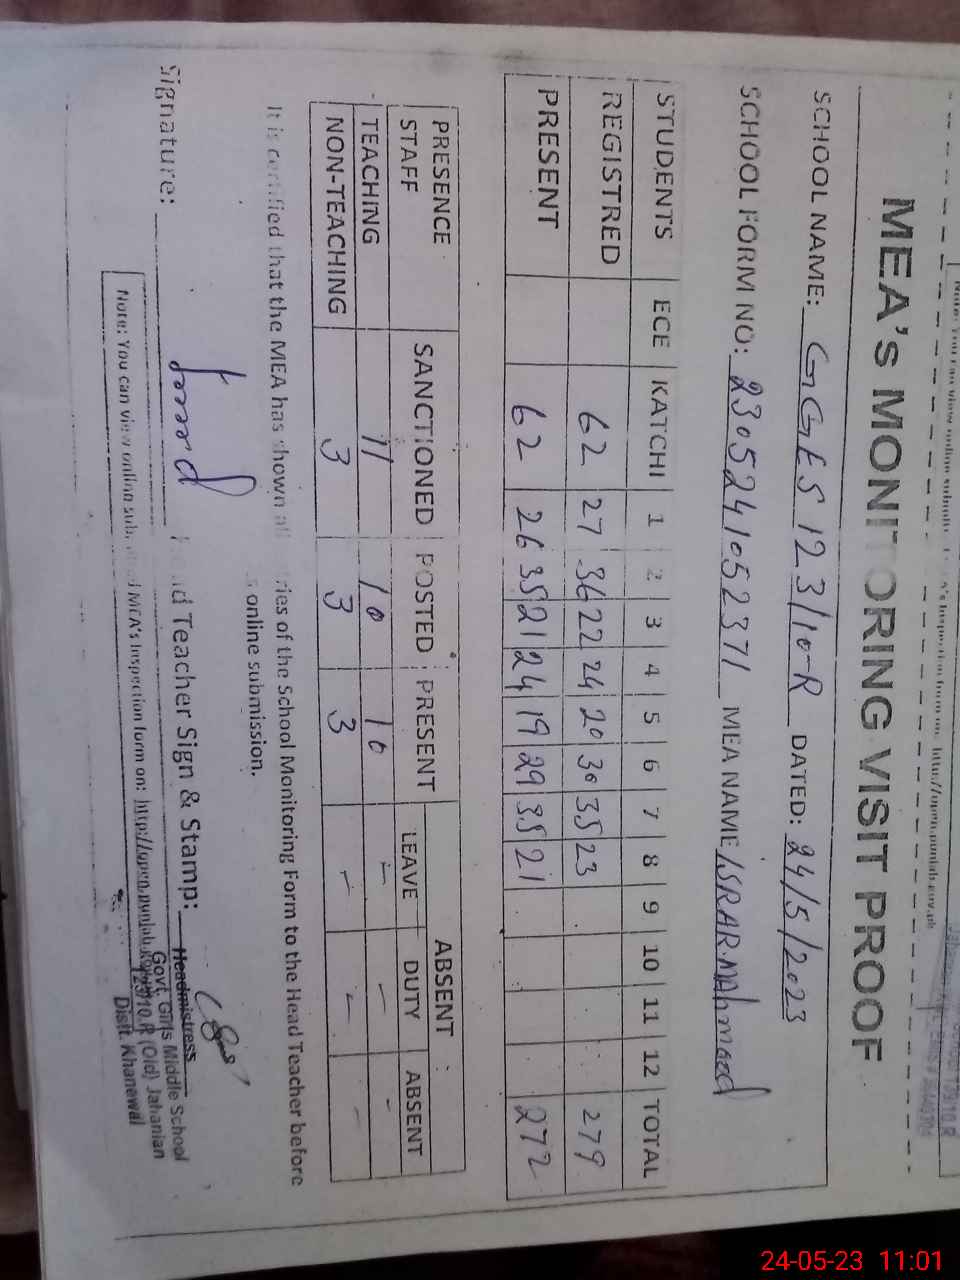 MEA's MONITORING VISIT PROOF
SCHOOL NAME: GGES 123/10-R DATED: 24/5/2023
SCHOOL FORM NO: 2305241052371 MEA NAME ISRAR Mahmood
STUDENTS ECE KATCHI 1 2 3 4 5 6 7 8 9 10 11 12 TOTAL
REGISTRED 62 27 36 22 24 20 30 35 23 279
PRESENT 62 26 35 21 24 19 29 35 21 272
PRESENCE STAFF SANCTIONED POSTED PRESENT ABSENT
LEAVE DUTY ABSENT
TEACHING 11 10 10 - - -
NON-TEACHING 3 3 3 - - -
It is certified that the MEA has shown all ries of the School Monitoring Form to the Head Teacher before
online submission.
Signature: Head Teacher Sign & Stamp:
Headmistress
Govt. Girls Middle School
123/10.R (Old) Jahanian
Distt. Khanewal
Note: You can view online MEA's Inspection form on: http://open.punjab.gov.pk
24-05-23 11:01